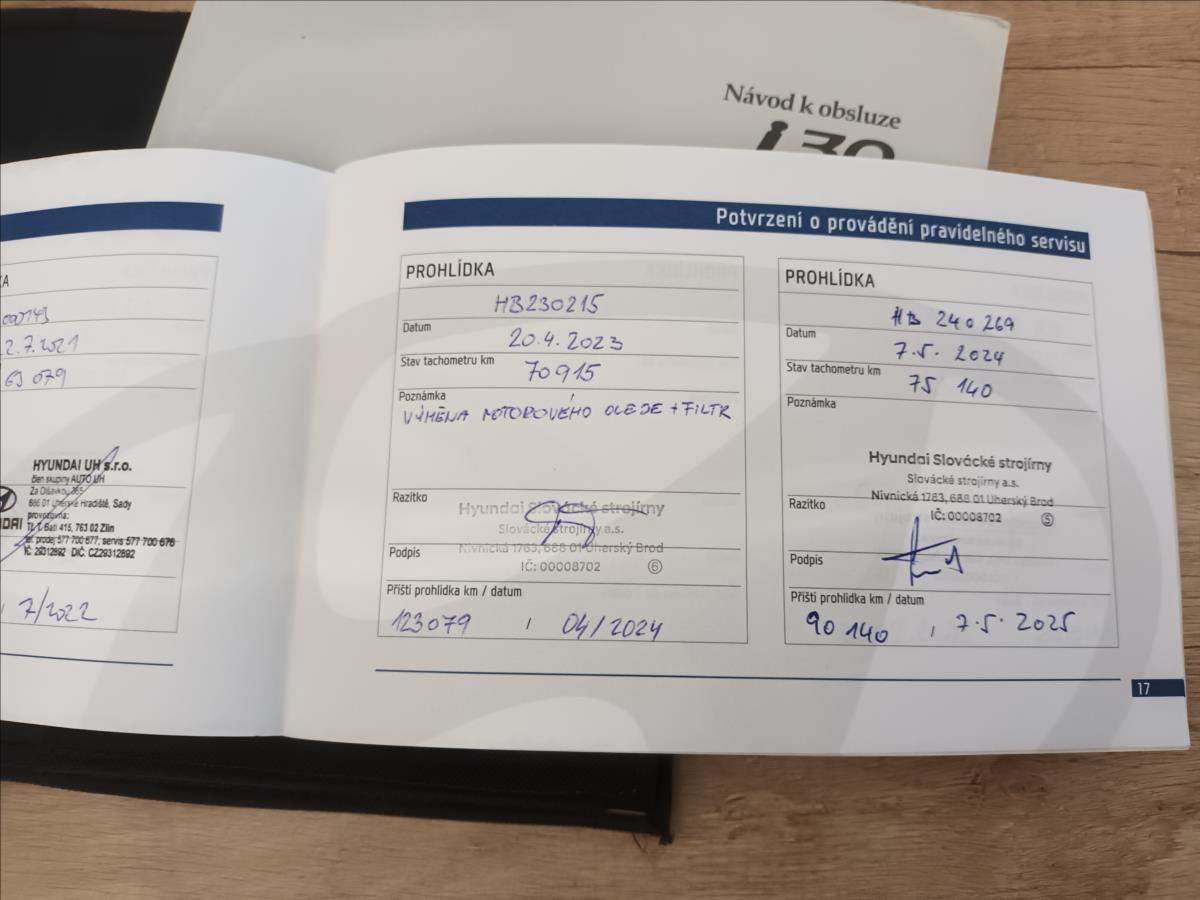 Návod k obsluze
i30
Potvrzení o provádění pravidelného servisu
2.7.2021
63 079
HYUNDAI UH s.r.o.
člen skupiny AUTO UH
Za Olšávkou 365
686 01 Uherské Hradiště, Sady
provozovna:
Tř. T. Bati 415, 763 02 Zlín
tel. prodej 577 700 677, servis 577 700 676
IČ: 29312892 DIČ: CZ29312892
7/2022
PROHLÍDKA
HB230215
Datum
20.4.2023
Stav tachometru km
70915
Poznámka
VÝMĚNA MOTOROVÉHO OLEJE + FILTR
Razítko
Hyundai Slovácké strojírny
Slovácké strojírny a.s.
Nivnická 1763, 688 01 Uherský Brod
IČ: 00008702 6
Podpis
Příští prohlídka km / datum
123079 / 04/2024
PROHLÍDKA
HB 240269
Datum
7.5. 2024
Stav tachometru km
75 140
Poznámka
Hyundai Slovácké strojírny
Slovácké strojírny a.s.
Nivnická 1763, 688 01 Uherský Brod
IČ: 00008702 5
Razítko
Podpis
Příští prohlídka km / datum
90 140 / 7.5. 2025
17